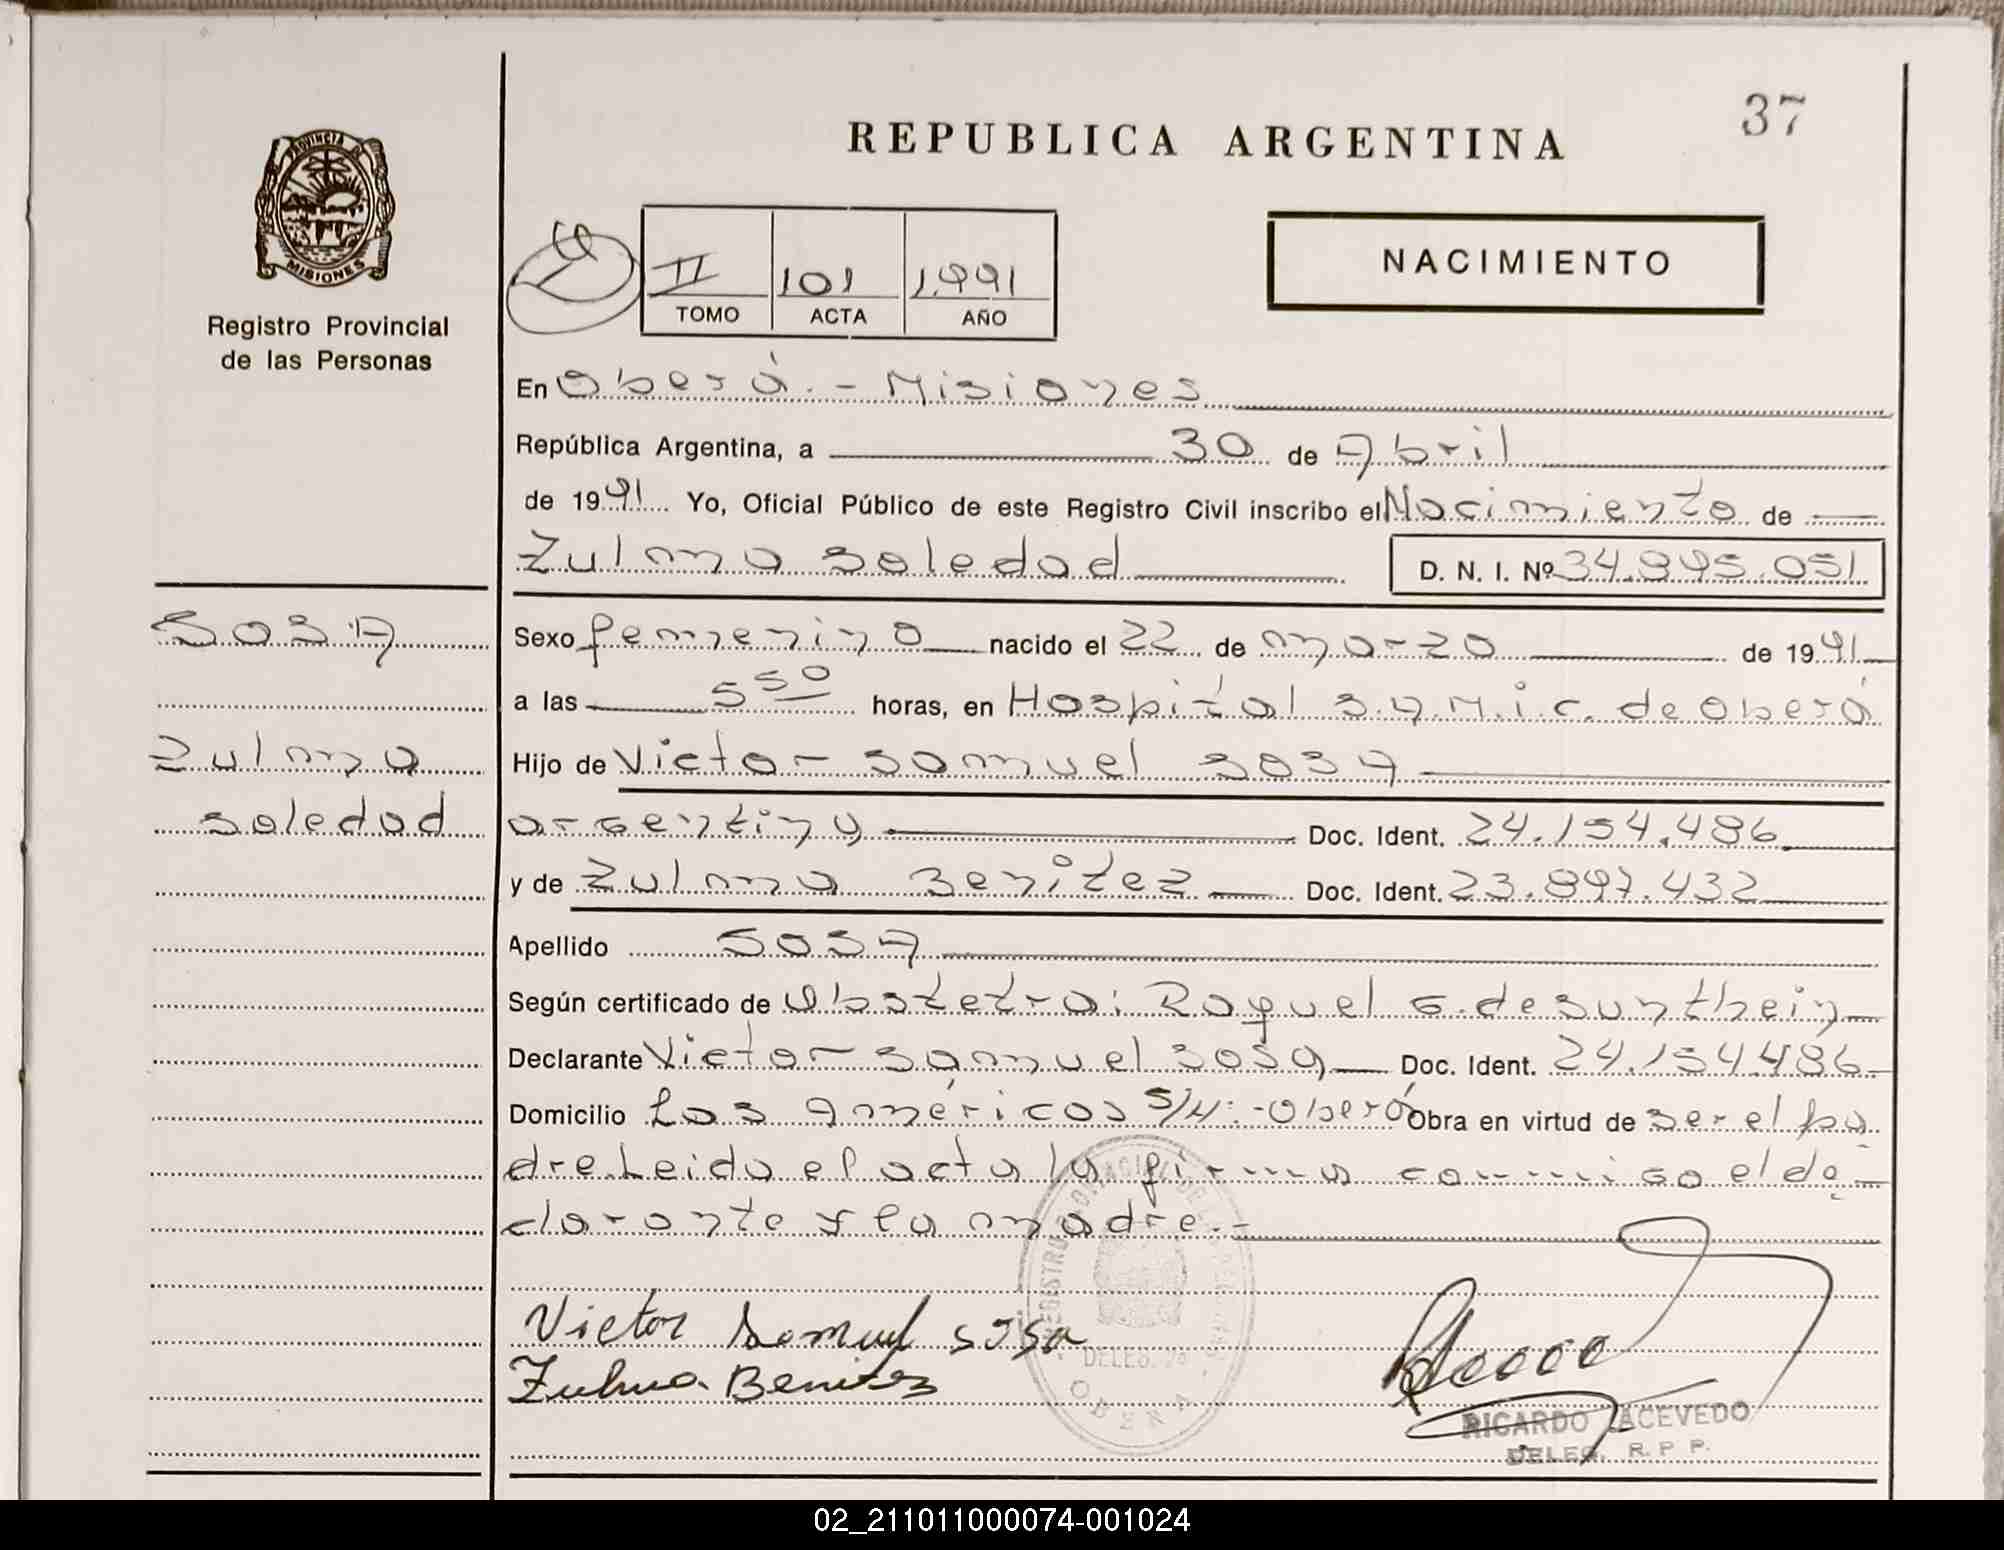 37
REPUBLICA ARGENTINA
PROVINCIA DE
MISIONES
Registro Provincial
de las Personas
II 101 1991
TOMO ACTA AÑO
NACIMIENTO
En Oberá.- Misiones
República Argentina, a 30 de Abril
de 1991 Yo, Oficial Público de este Registro Civil inscribo el Nacimiento de
Zulma Soledad D. N. I. Nº 34.895.051
SOSA
Zulma
Soledad
Sexo femenino nacido el 22 de marzo de 1991
a las 5 50 horas, en Hospital S.A.M.i.c. de Oberá
Hijo de Victor Samuel SOSA
argentino Doc. Ident. 24.154.486
y de Zulma Benitez Doc. Ident. 23.897.432
Apellido SOSA
Según certificado de Obstetra: Raquel G. de Sunthein
Declarante Victor Samuel Sosa Doc. Ident. 24.154.486
Domicilio Las Américas S/N:-Oberá Obra en virtud de ser el pa
dre. Leida el acta la firma conmigo el de
clarante y la madre.-
Victor Samuel Sosa
Zulma Benitez
DELEG.
OBERA
RICARDO ACEVEDO
DELEG. R. P. P.
02_211011000074-001024